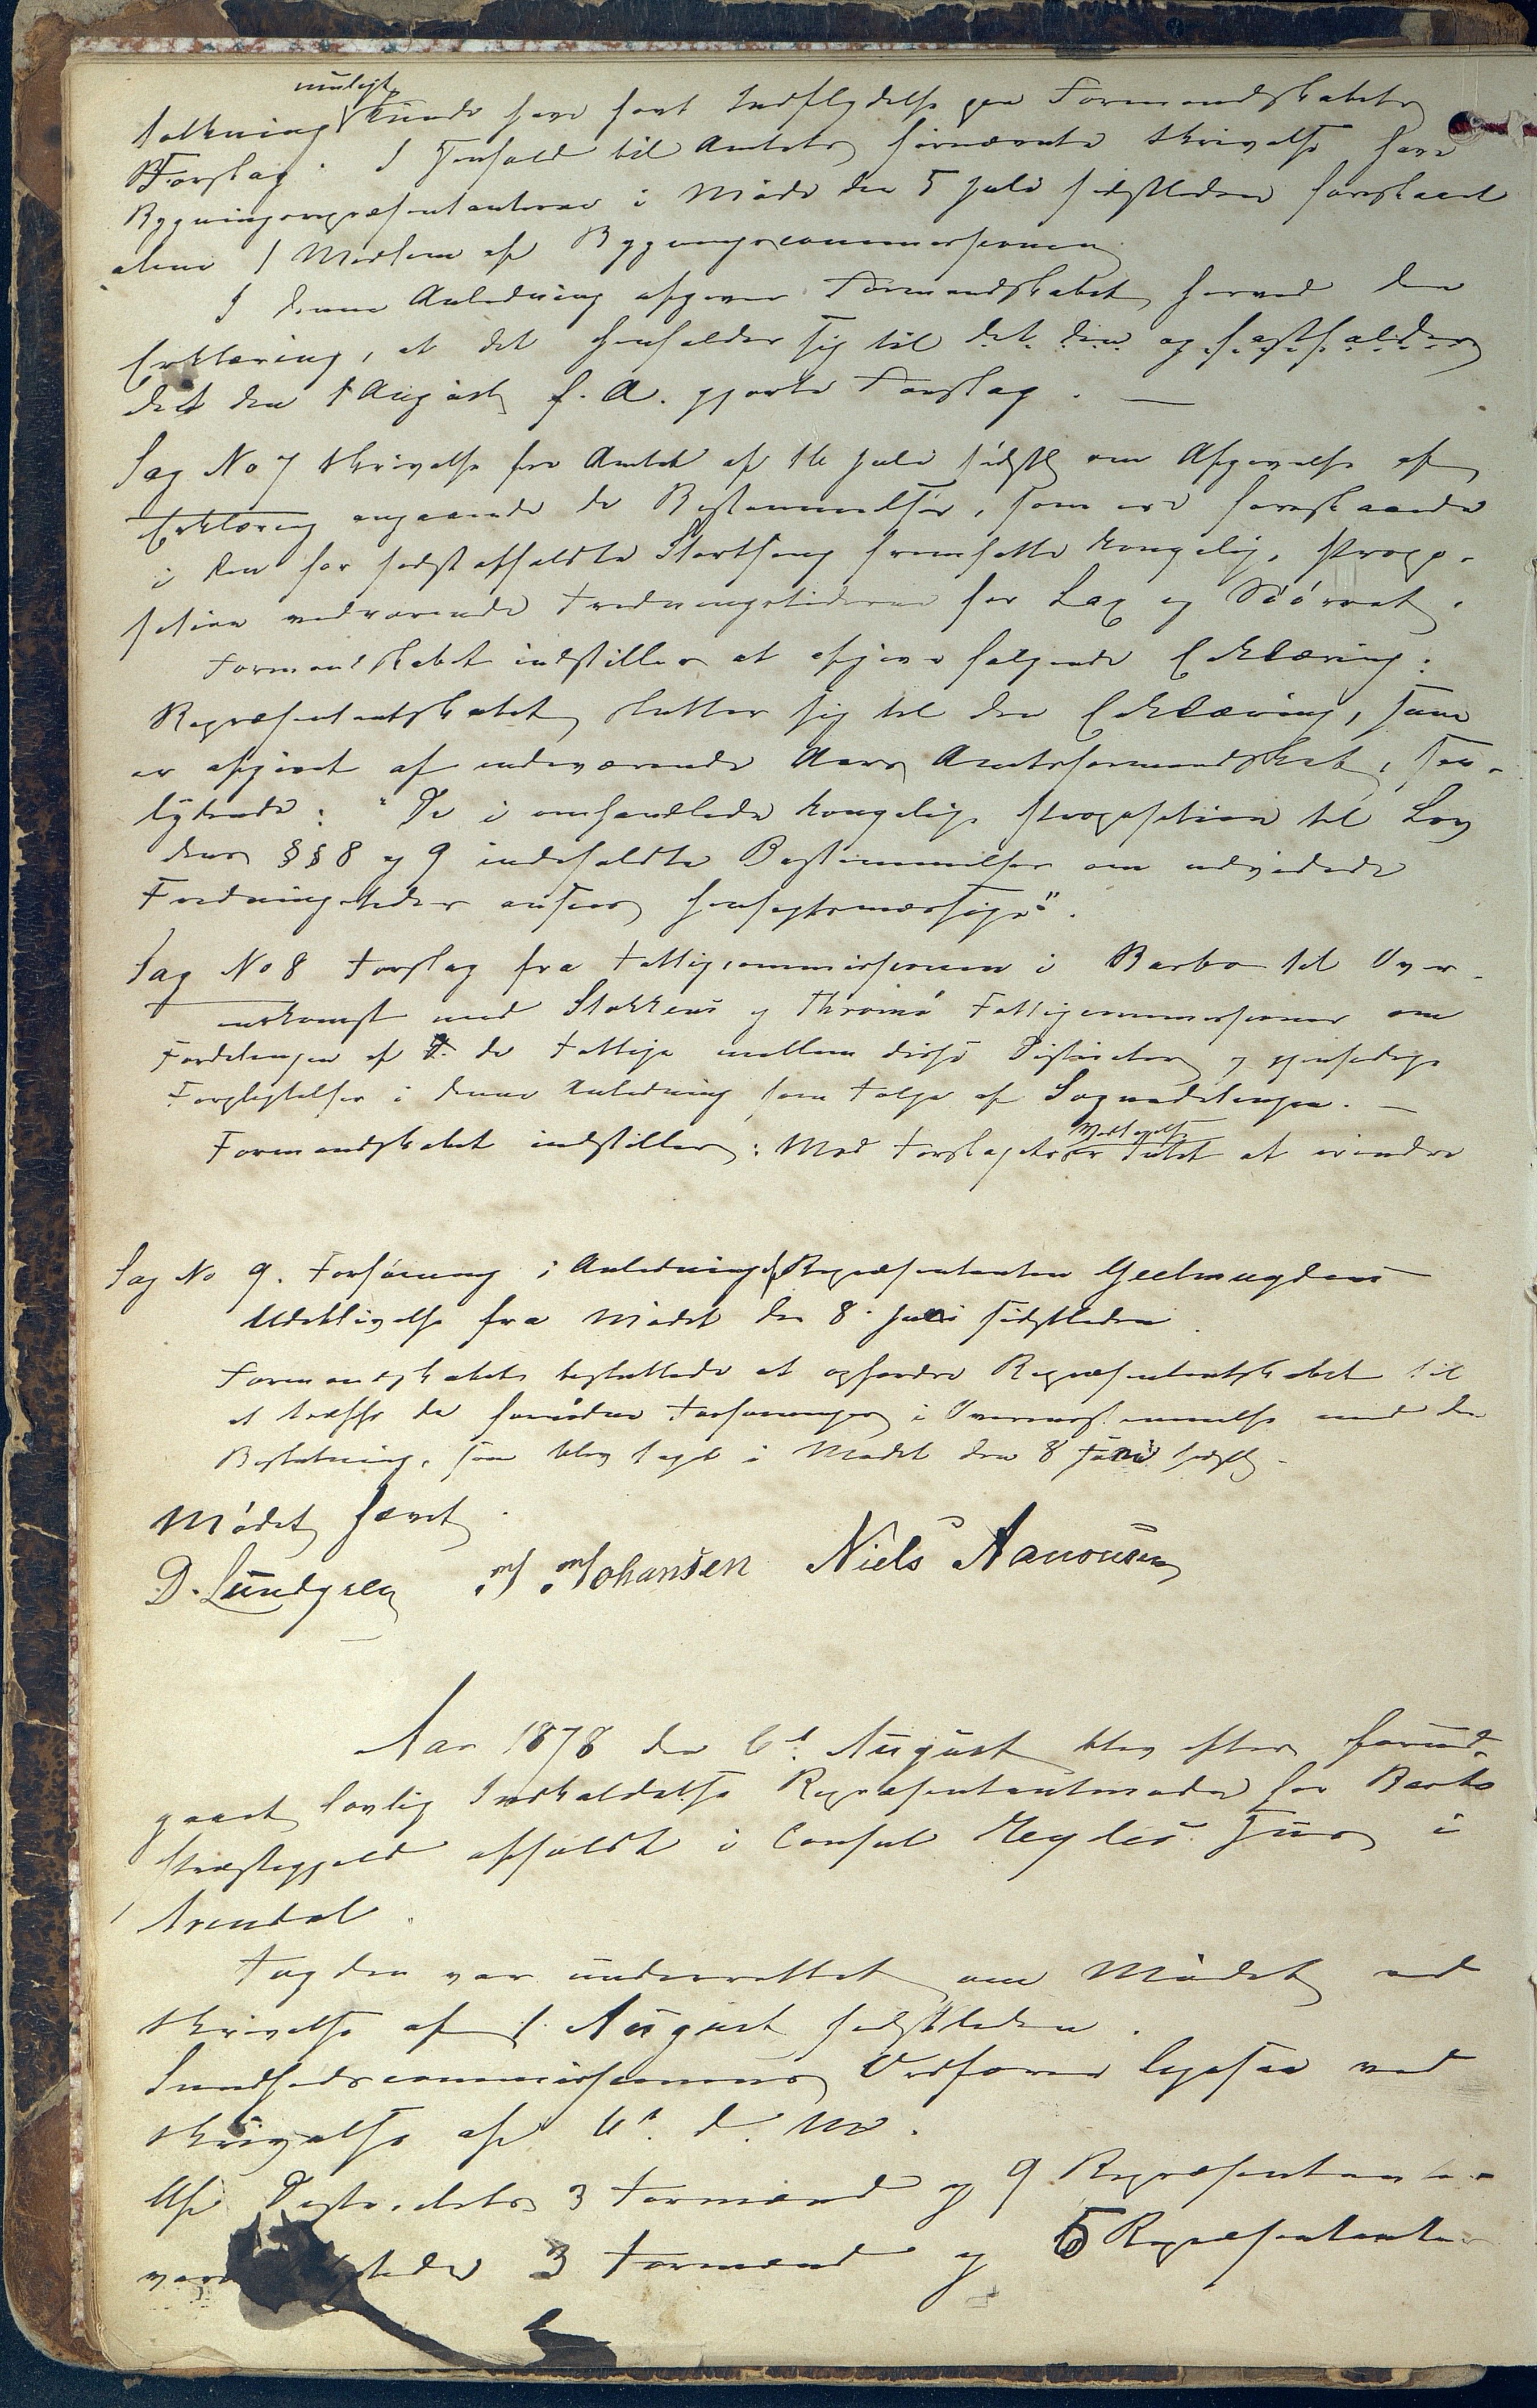 muligt
tolkning kunde have havt Indflydelse paa Formandskabets
Forslag. I Henhold til Amtets fornævnte Skrivelse have
Bygningsrepræsentanterne i Møde den 5 Juli sidstleden foreslaaet
alene 1 Medlem af Bygningscommissionen.
I denne Anledning afgiver Formandskabet herved den
Erklæring, at det henholder sig til det den og fastholder
det den 1 August f. A. gjorte Forslag. —
Sag No 7 Skrivelse fra Amtet af 16 Juli sidstl om Afgivelse af
Erklæring angaaende de Bestemmelser, som ere foreslaaede
i den for sidst afholdte Storthing fremsatte kongelig. Propo-
sition vedrørende Fredningstiderne for Lax og Søørret.
Formandskabet indstiller at afgive følgende Erklæring:
Repræsentantskabet slutter sig til den Erklæring, som
er afgivet af indeværende Aars Amtsformandskab, saa-
lydende: "De i omhandlede kongelige Proposition til Lov
dens §§ 8 og 9 indeholdte Bestemmelser om udvidede
Fredningstider ansees hensigtsmæssige".
Sag No 8 Forslag fra Fattigcommissionen i Barbo til Over-
enskomst med Stokkens og Thromø Fattigcommissioner om
Fordelingen af de Fattige mellem disse Districter og gjensidige
Forpligtelser i denne Anledning som Følge af Sognedelingen. —
Vedtagelse
Formandskabet indstiller: Mod Forslagets er Intet at erindre
Sag No 9. Forføining i Anledning af Repræsentanten Geelmuydens
Udeblivelse fra Mødet den 8. Juni sidstleden.
Formandskabet besluttede at opfordre Repræsentantskabet til
at træffe de fornødne Forføininger i Overensstemmelse med den
Beslutning, som blev taget i Mødet den 8 Juni sidstl.
Mødet hævet.
D. Lundgren J. Johansen Niels Aanonsen
Aar 1878 den 6d. August blev efter forud-
gaaet lovlig Indkaldelse Repræsentantmøde for Barbo
Præstegjeld afholdt i Consul Keyles Huus i
Arendal.
Fogden var underrettet om Mødet ved
Skrivelse af 1. August sidstleden.
Sundhedscommissionens Ordfører ligesaa ved
Skrivelse af d. M.
Af Districtets 3 Formænd og 9 Repræsentanter
3 Formænd og 5 Repræsentanter